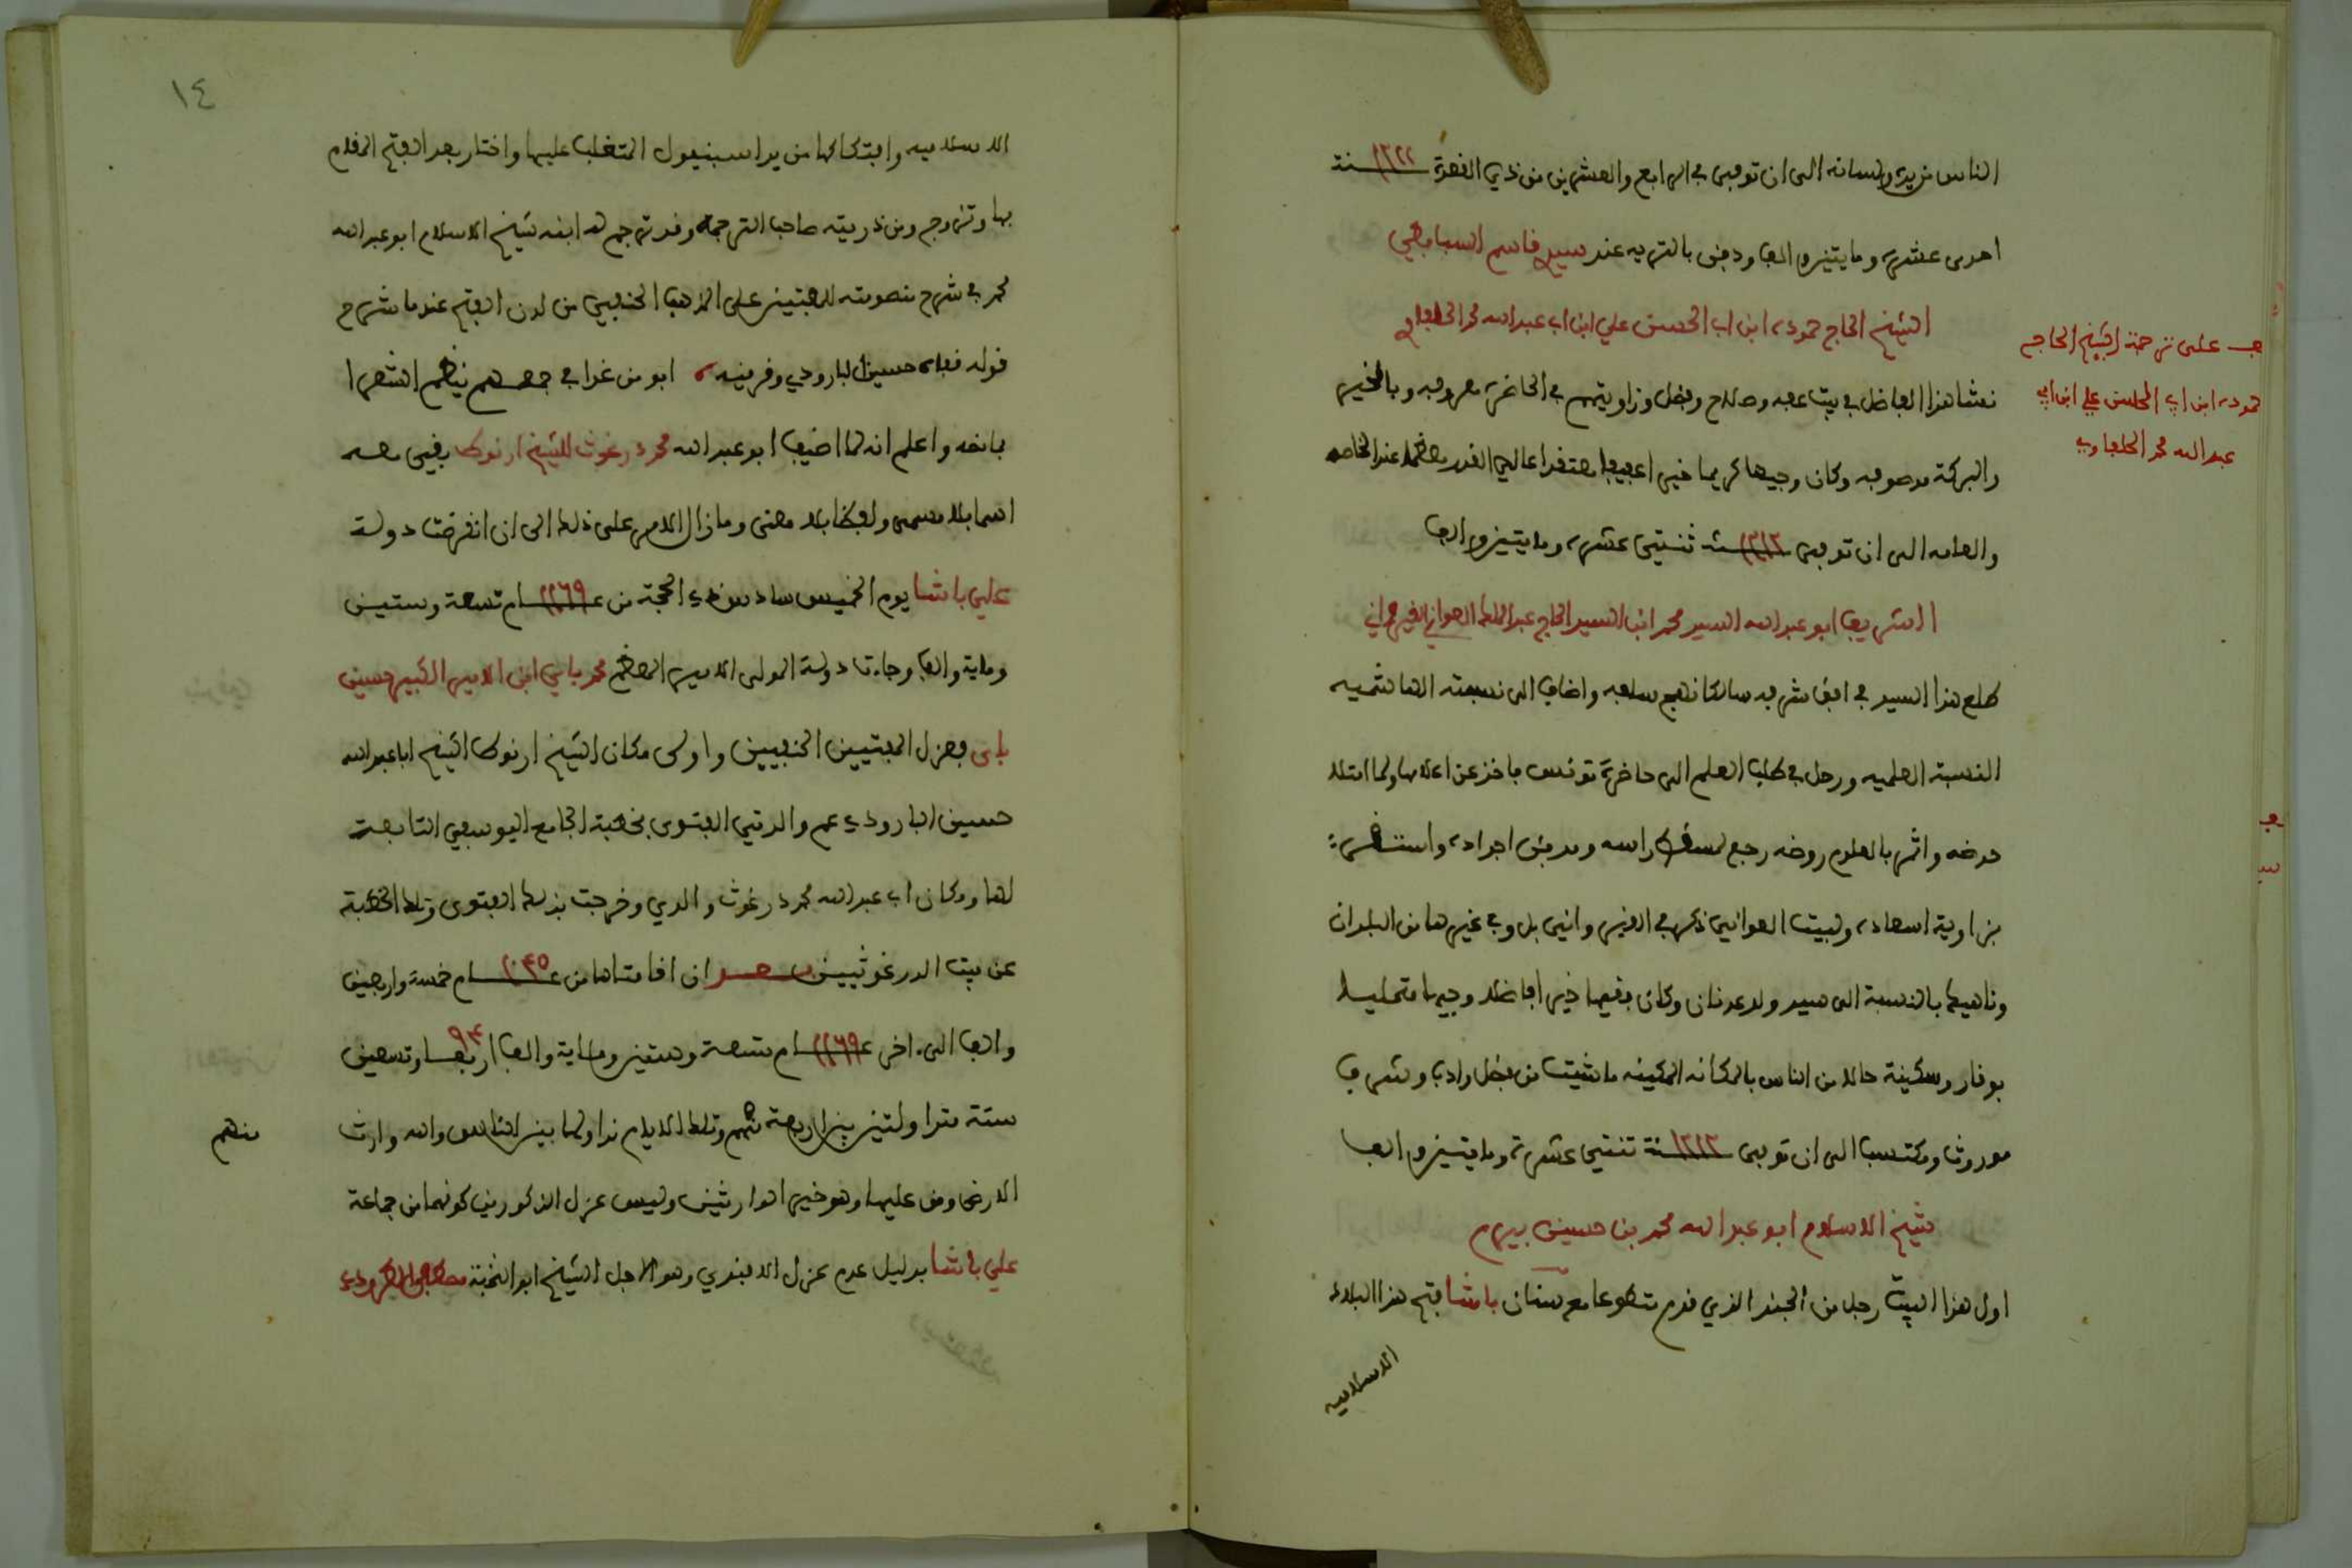 الناس من يده ولسانه الى ان توفى في الرابع والعشرين من ذي القعدة سنة ١٢٢٢
احدى عشرة ومايتين والف ودفن بالتربه عند سيدي قاسم السبابطي
الشيخ الحاج حمودة ابن اب الحسن علي ابن اب عبد الله محمد الحلفاوي
نشا هذا الفاضل في بيت عفه وصلاح وفضل وزاويتهم في الحاضرة معروفه وبالخير
والبركة موصوفه وكان وجيها كريما خيرا عفيفا معتقدا عالي القدر معظما عند الخاصه
والعامه الى ان توفى سنة ١٢١٢ ثنتي عشرة ومايتين والف
الشريف ابو عبد الله السيد محمد ابن السيد الحاج عبد الملك العواني القيرواني
طلع هذا السيد في افق شرفه سالكا نهج سلفه واضاف الى نسبته الهاشميه
النسبة العلميه ورحل في طلب العلم الى حاضرة تونس فاخذ عن اعلامها ولما امتلا
حوضه واثمر بالعلوم روضه رجع لمسقط راسه ومدفن اجداده واستقر
بزاوية اسعاده ولبيت العواني ذكر في القيروانيين بل وفي غيرها من البلدان
وناهيك بالنسبة الى سيد ولد عدنان وكان فقيها خيرا فاضلا وجيها متحليا
بوقار وسكينة حالا من الناس بالمكانه المكينه ما شيت من فضل وادب وشرف
موروث ومكتسب الى ان توفى سنة ١٢١٢ ثنتي عشرة ومايتين والف
شيخ الاسلام ابو عبد الله محمد بن حسين بيرم
اول هذا البيت رجل من الجند الذي قدم متطوعا مع سنان باشا فتح هذا البلاد
الاسلاميه
ف على ترجمة الشيخ الحاج
حمودة ابن اب الحسن علي ابن اب
عبد الله محمد الحلفاوي
١٤
الاسلاميه وافتكاكها من يد اسبنيول المتغلب عليها واختار بعد الفتح المقام
بها وتزوج ومن ذريته صاحب الترجمة وقد ترجم له ابنه شيخ الاسلام ابو عبد الله
محمد في شرح منظومته للمفتين على المذهب الحنفي من لدن الفتح عندما شرح
قوله فعلاه حسين البارودي وقرينه ابو من غدا في جمعهم ينظم الشعرا
فانه واعلم انه لما اضيف ابو عبد الله محمد درغوث للشيخ ارنوط بقي معه
اسما بلا مسمى ولفظا بلا معنى وما زال الامر على ذلك الى ان انقرضت دولة
علي باشا يوم الخميس سادس ذي الحجة من عام ١١٦٩ تسعة وستين
وماية والف وجاءت دولة المولى الامير المفخم محمد باي ابن الامير الكبير حسين
باى فعزل المفتيين الحنفيين واولى مكان الشيخ ارنوط الشيخ ابا عبد الله
حسين البارودي عم والدتي الفتوى بخطبة الجامع اليوسفي التابعة
لها ومكان اب عبد الله محمد درغوث والدي وخرجت بذلك الفتوى وتلك الخطبة
عن بيت الدرغوثيين بعد ان اقامتاها من عام ١٠٤٥ خمسة واربعين
والف الى اخر عام ١١٦٩ تسعة وستين وماية والف اربعا وتسعين ٩٤
سنة متداولتين بين اربعة منهم وتلك الايام نداولها بين الناس والله وارث
الارض ومن عليها وهو خير الوارثين وليس عزل المذكورين كونهما من جماعة
علي باشا بدليل عدم عزل الافندي وهو الاجل الشيخ ابو النخبة مصطفى
منهم